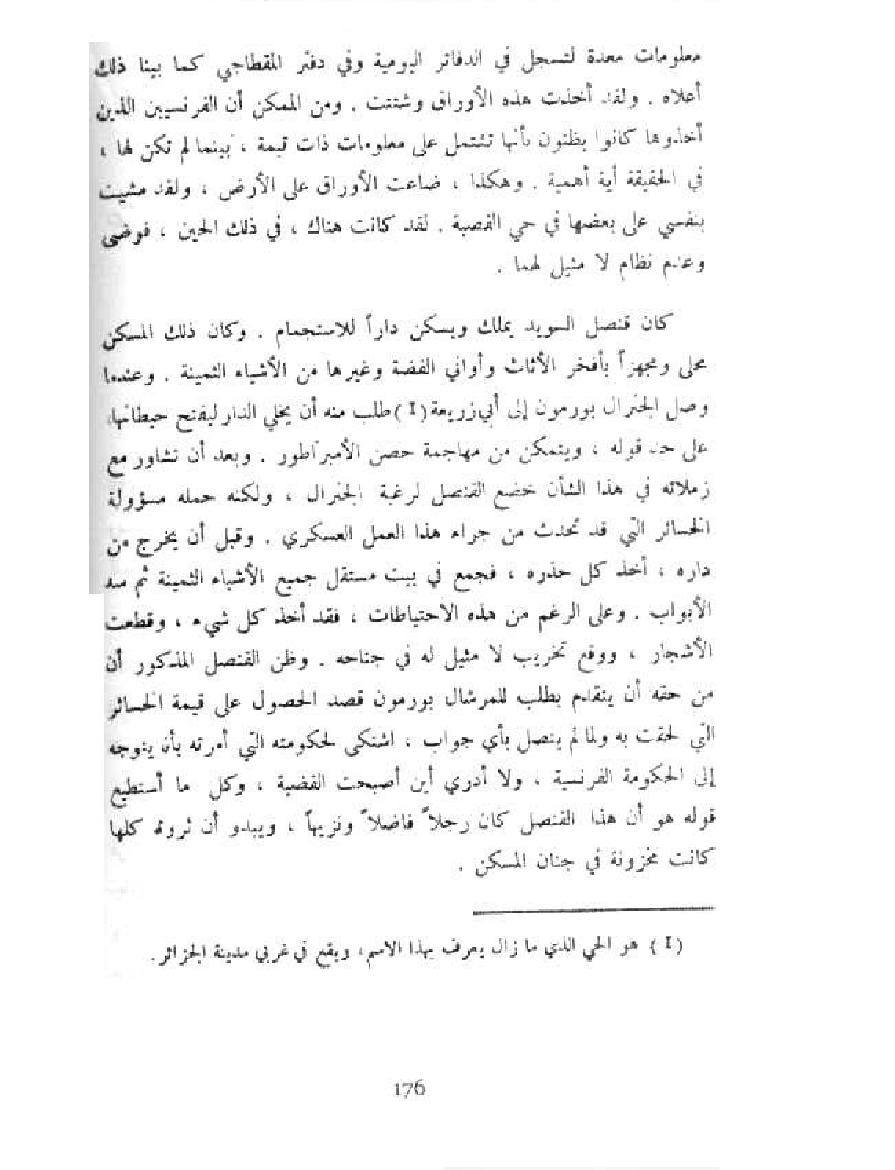 معلومات معدة لتسجل في الدفاتر اليومية وفي دفتر المقطاجي كما بينا ذلك
أعلاه . ولقد أخذت هذه الأوراق وشتتت . ومن الممكن أن الفرنسيين الذين
أخذوها كانوا يظنون بأنها تشتمل على معلومات ذات قيمة ، بينما لم تكن لها ،
في الحقيقة أية أهمية . وهكذا ، ضاعت الأوراق على الأرض ، ولقد مشيت
بنفسي على بعضها في حي القصبة . لقد كانت هناك ، في ذلك الحين ، فوضى
وعدم نظام لا مثيل لهما .
كان قنصل السويد يملك ويسكن داراً للاستحمام . وكان ذلك المسكن
محلى ومجهزاً بأفخر الأثاث وأواني الفضة وغيرها من الأشياء الثمينة . وعندما
وصل الجنرال بورمون إلى أبي زريعة (I) طلب منه أن يخلي الدار ليفتح حيطانها،
على حد قوله ، ويتمكن من مهاجمة حصن الأمبراطور . وبعد أن تشاور مع
زملائه في هذا الشأن خضع القنصل لرغبة الجنرال ، ولكنه حمله مسؤولة
الخسائر التي قد تحدث من جراء هذا العمل العسكري . وقبل أن يخرج من
داره ، أخذ كل حذره ، فجمع في بيت مستقل جميع الأشياء الثمينة ثم سد
الأبواب . وعلى الرغم من هذه الاحتياطات ، فقد أخذ كل شيء ، وقطعت
الأشجار ، ووقع تخريب لا مثيل له في جناحه . وظن القنصل المذكور أن
من حقه أن يتقدم بطلب للمرشال بورمون قصد الحصول على قيمة الخسائر
التي لحقت به ولما لم يتصل بأي جواب ، اشتكى لحكومته التي أمرته بأن يتوجه
إلى الحكومة الفرنسية ، ولا أدري أين أصبحت القضية ، وكل ما أستطيع
قوله هو أن هذا القنصل كان رجلاً فاضلاً ونزيهاً ، ويبدو أن ثروته كلها
كانت مخزونة في جنان المسكن .
(I) هو الحي الذي ما زال يعرف بهذا الاسم، ويقع في غربي مدينة الجزائر .
176